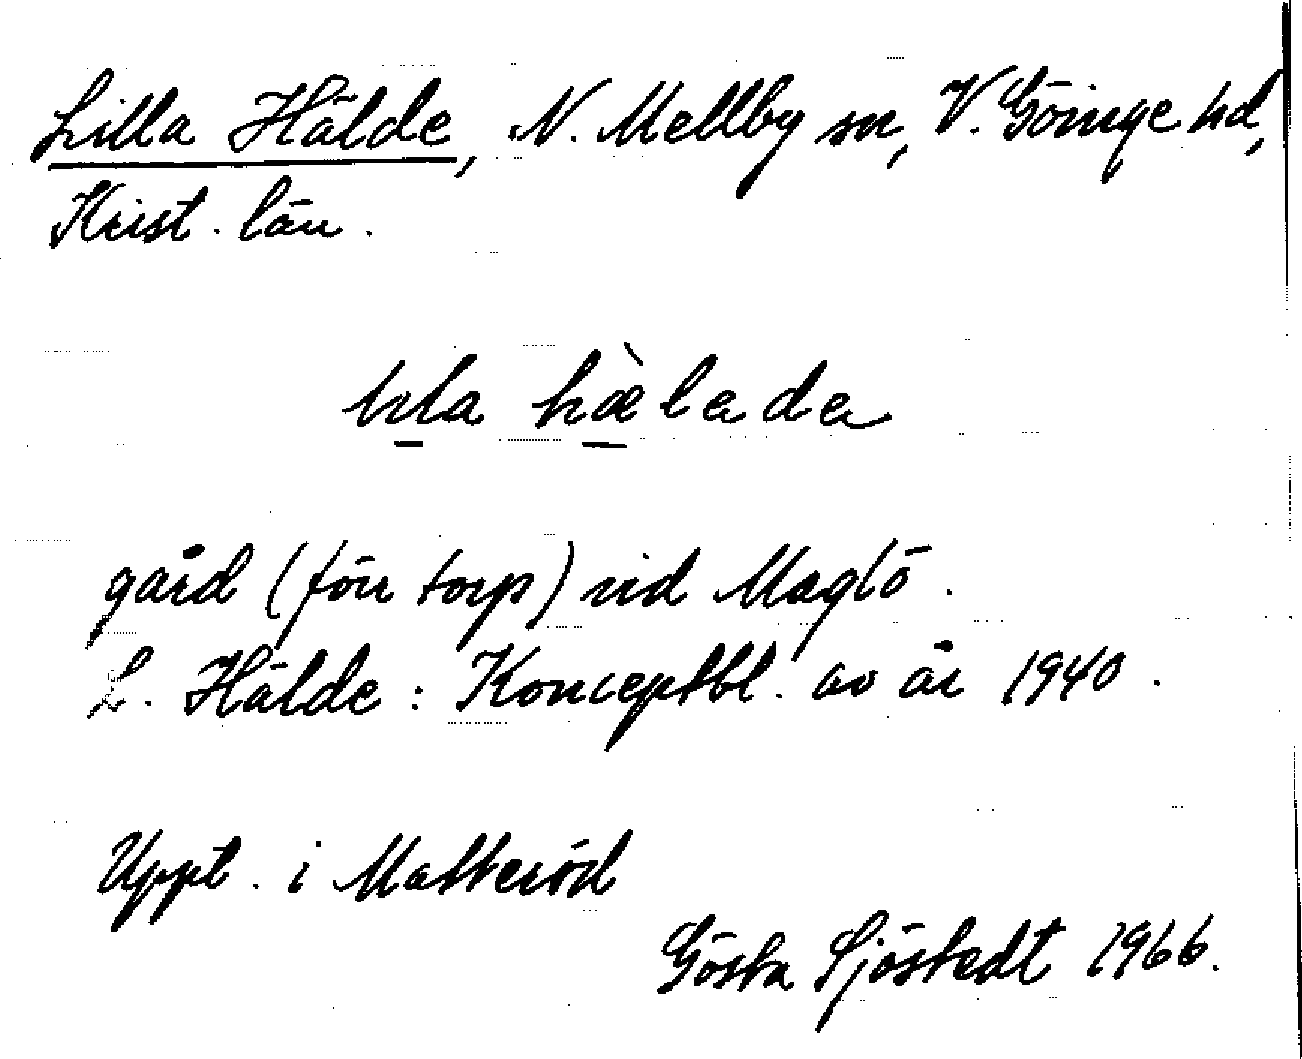 Lilla Hälde, N. Mellby sn, V. Göinge hd,
Krist. län.
hælada
gård (förr torp) vid Maglö.
L. Hälde: Konceptbl. av år 1940.
Uppt. i Matteröd
Gösta Sjöstedt 1966.